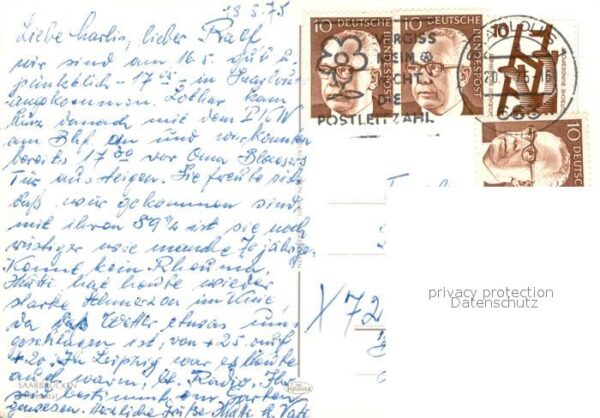 18.5.75
Liebe Marlis, lieber Ralf
wir sind am 16.5. gut u.
pünktlich - 17 05 - in Saarbrü.
angekommen. Lothar kam
kurz danach mit dem PKW
am Bhf. an und wir konnten
bereits 17 30 vor Oma
Tür aussteigen. Sie freute sich
daß wir gekommen sind
mit ihren 89 1/2 ist sie noch
rüstiger wie manche 70 jährige
Kennt kein Rheuma.
Mutti hat heute wieder
starke Schmerzen im Knie,
da das Wetter etwas um-
geschlagen ist, von +25 auf
+20. In Leipzig war es heute
auch warm, lt. Radio. Ihr
seid bestimmt im Garten
gewesen. Herzliche Grüße Mutti u. Vati
SAARBRÜCKEN
10 DEUTSCHE BUNDESPOST
10 DEUTSCHE BUNDESPOST
10 DEUTSCHE BUNDESPOST
10
VERGISS
MEIN
NICHT
DIE
POSTLEITZAHL
X 72
privacy protection
Datenschutz